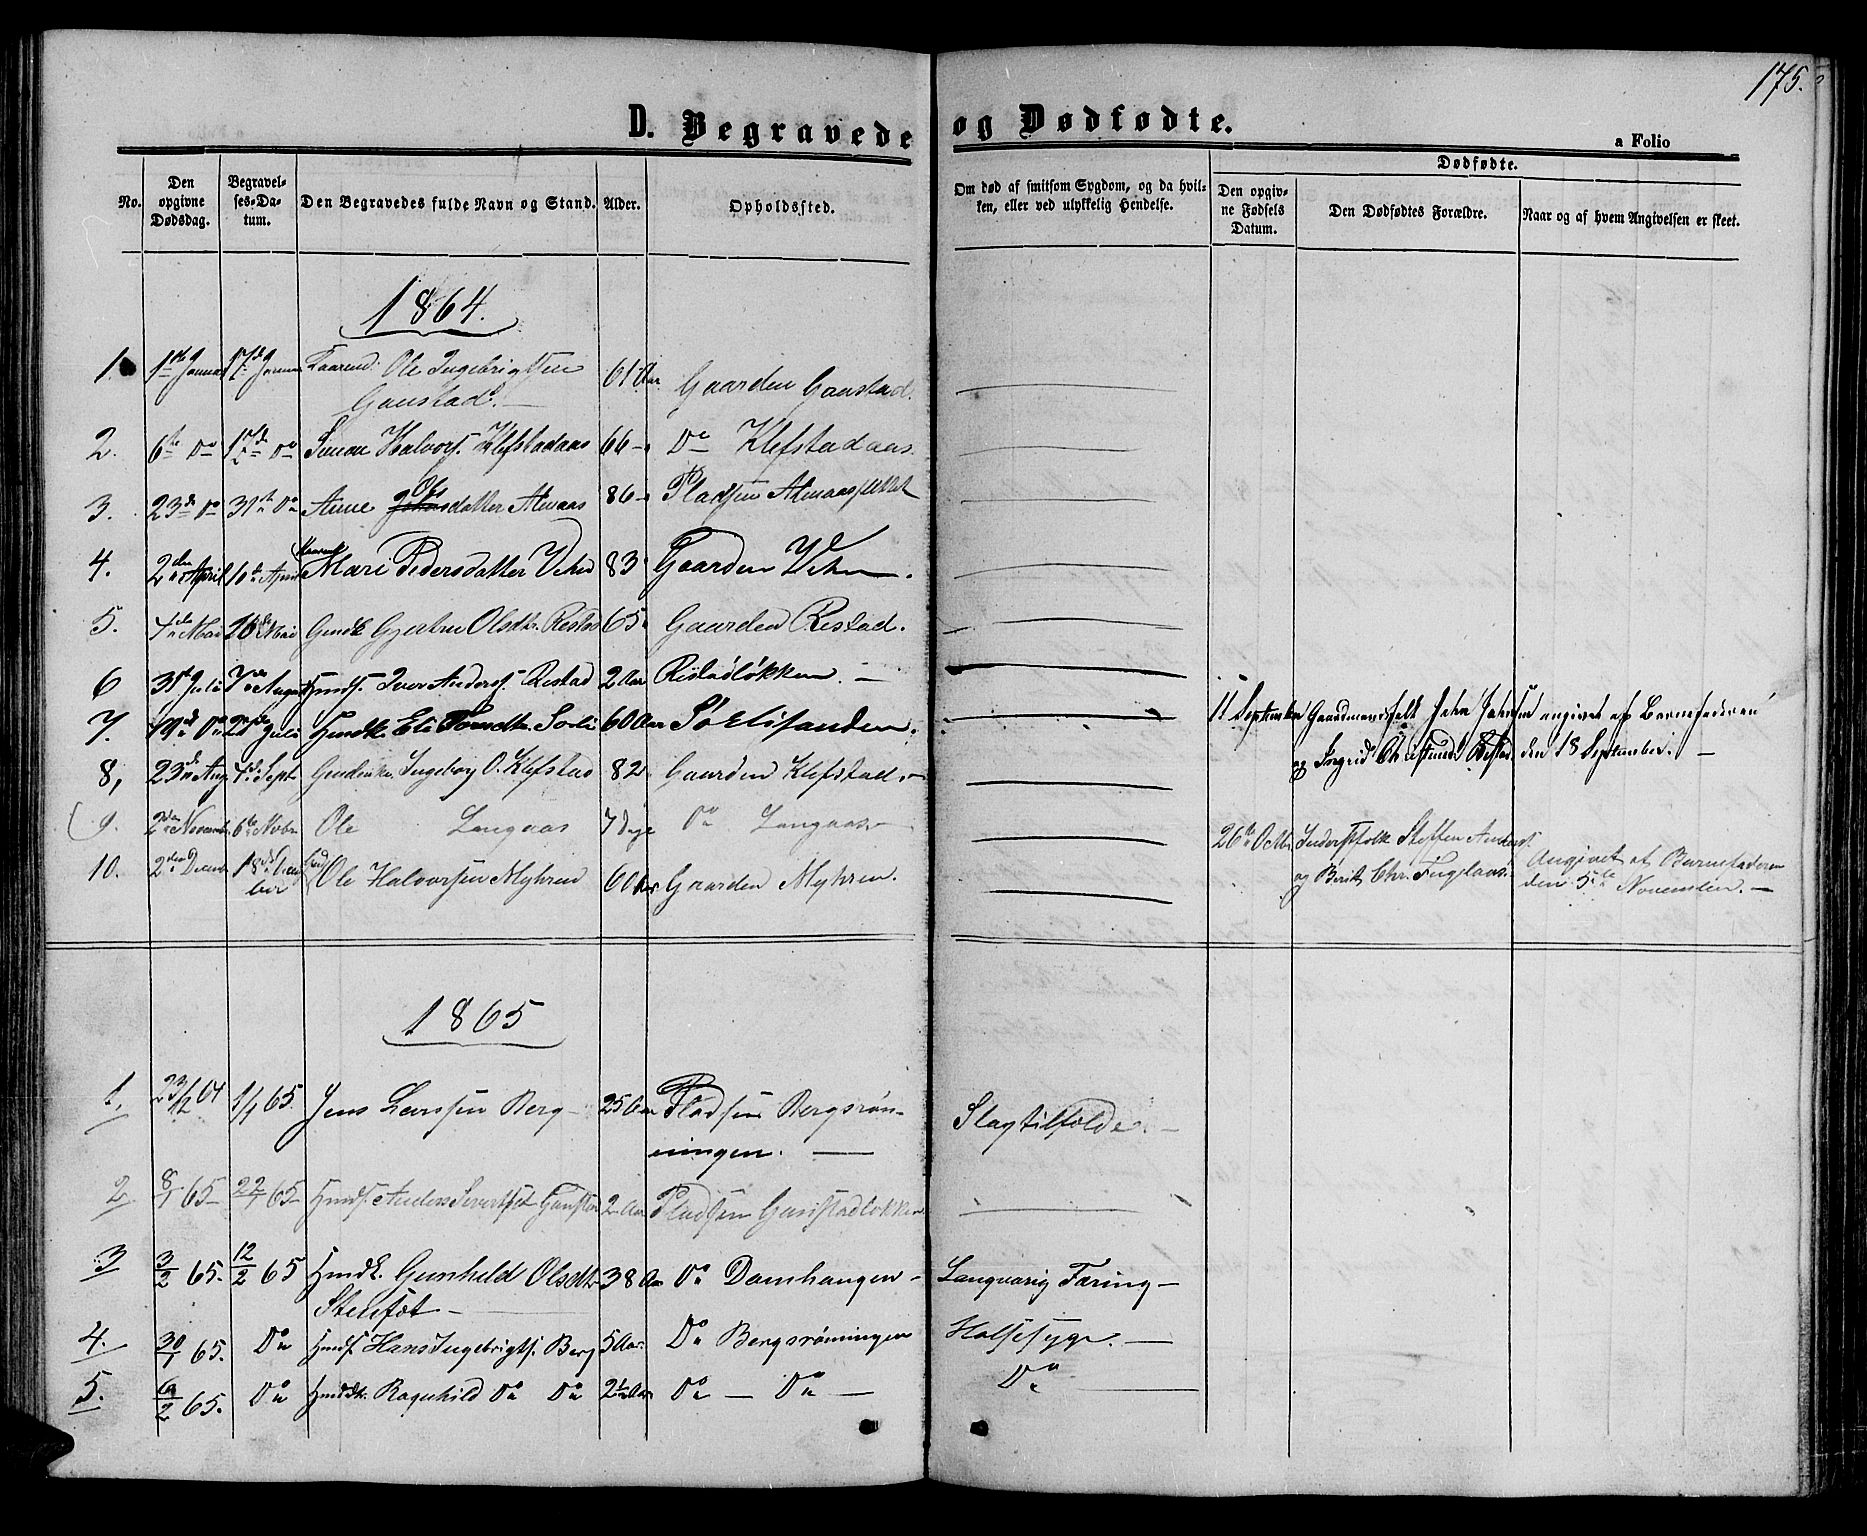 175.
D. Begravede og Dødfødte.
a Folio
No.
Den opgivne Dødsdag.
Begravelses-Datum.
Den Begravedes fulde Navn og Stand.
Alder.
Opholdssted.
Om død af smitsom Sygdom, og da hvilken, eller ved ulykkelig Hendelse.
Dødfødte.
Den opgivne Fødsels Datum.
Den Dødfødtes Forældre.
Naar og af hvem Angivelsen er skeet.
1864.
1. 1ste Januar 17de Januar Ole Ingebrigtsen 61 Aar Gaarden Gaustad.
Gaustad. —
2. 6te Do 17de Do Simon Halvors. Klefstadaas 66 — Do Klefstadaas
3. 23de Do 31te Do Anne Olsdatter Almaas 86 — Pladsen
4. 2den April 10de April Mari Pedersdatter 83 Gaarden
5. Mai 16de Mai Olsdtr. Restad 65 Gaarden Restad.
6 31te Juli 7de August Iver Anders. Restad 2 Aar Ristadløkken. —
7. 19de Do Juli Eli 60 Aar
11 September Gaardmandsfolk John Johnsen angivet af Barnefaderen
og Ingrid den 18 September. —
8, 23de Aug Sept Ingeborg O. Klefstad 82 Gaarden Klefstad —
9. 2den Novemb 6te Novbr Ole Langaas 7 Dage Do Langaas —
26de Octbr Inderstfolk Steffen Anders.
og Berit Chr. Fuglaas. Angivet af Barnefaderen
den 5te November. —
10. 2den Decemb 18de December Ole Halvorsen Myhren 60 Aar Gaarden Myhren.
1865
1, 23/12 64 1/1 65. Jens Larssen Berg — 25 Aar Pladsen Bergsrønningen. —
Slagtilfælde. —
2 8/1 65 — 22/1 65 — Anders Sivertsen 2 Aar Pladsen Gaustadløkken
3 3/2 65. 12/2 65 Gunhild Olsdtr 38 Aar Do Damhaugen — Langvarig Tæring —
—
4. 30/1 65. Do Hans Ingebrigts. Berg 5 Aar. Do Bergsrønningen Halsesyge. —
5. 6/2 65. Do Ragnhild Do Do 2½ Aar Do — Do — Do —